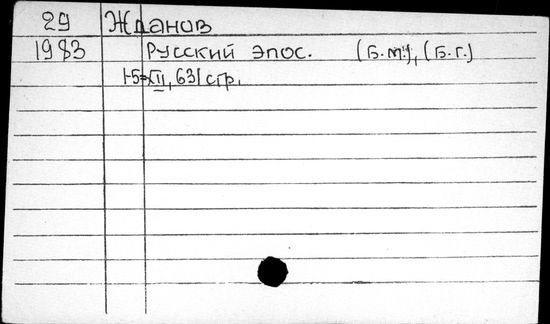 29 Жданов
1983 Русский эпос. (Б.м.), (Б.г.)
XII, 631 стр.